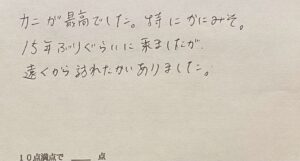 カニが最高でした。特にかにみそ。
15年ぶりぐらいに来ましたが、
遠くから訪れたかいありました。
10点満点で ＿＿ 点